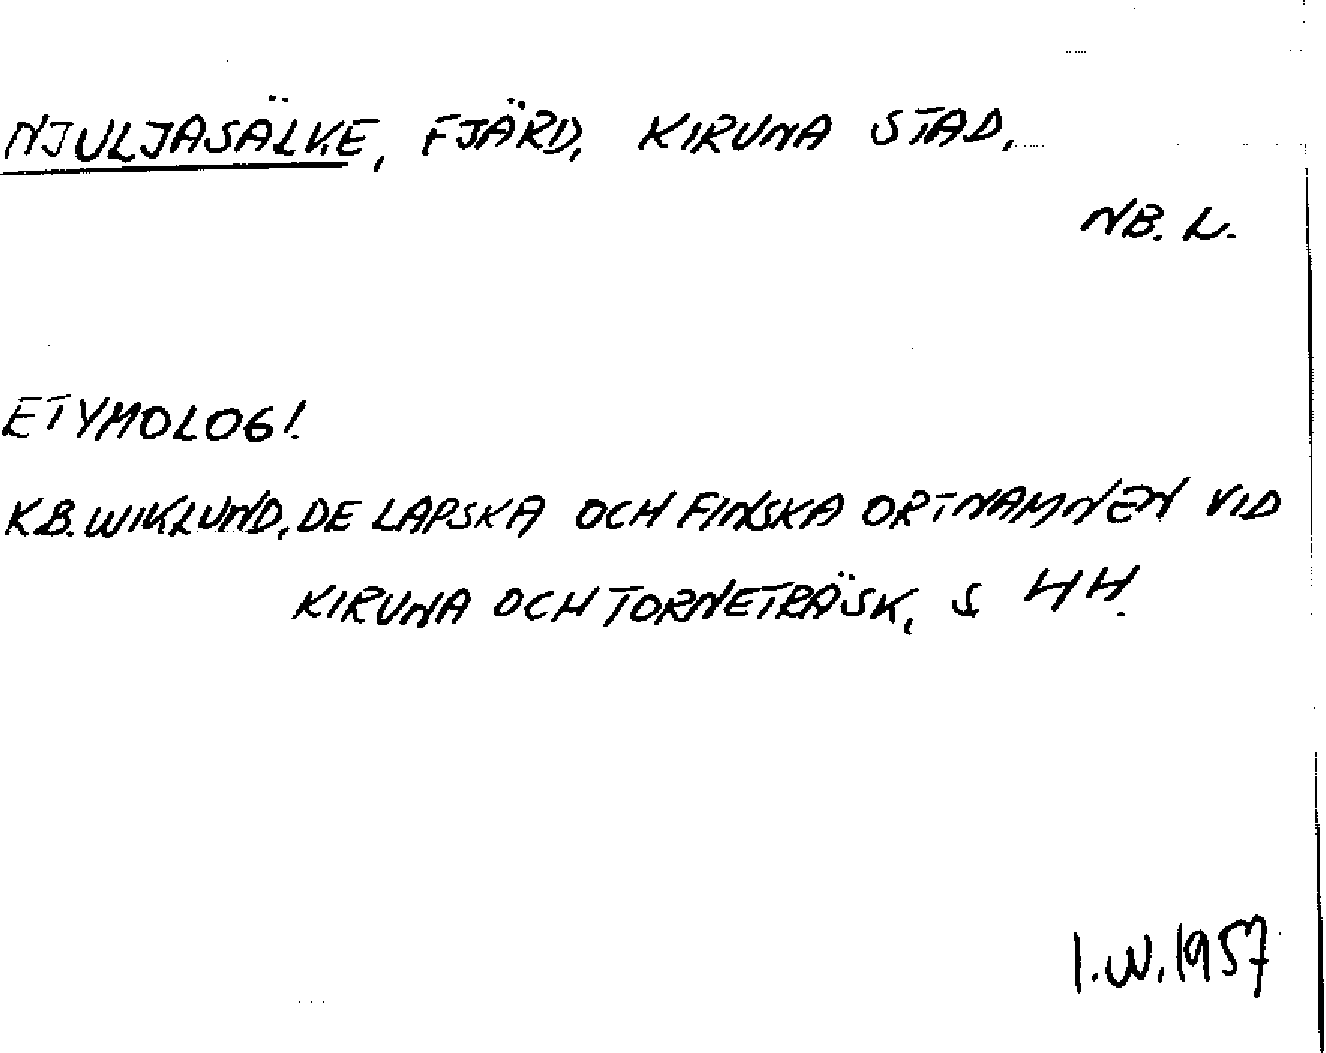 NJULJASÄLKE, FJÄRD, KIRUNA STAD.
NB. L.
ETYMOLOGI.
K.B. WIKLUND, DE LAPSKA OCH FINSKA ORTNAMNEN VID
KIRUNA OCH TORNETRÄSK, S 44.
I.W. 1957